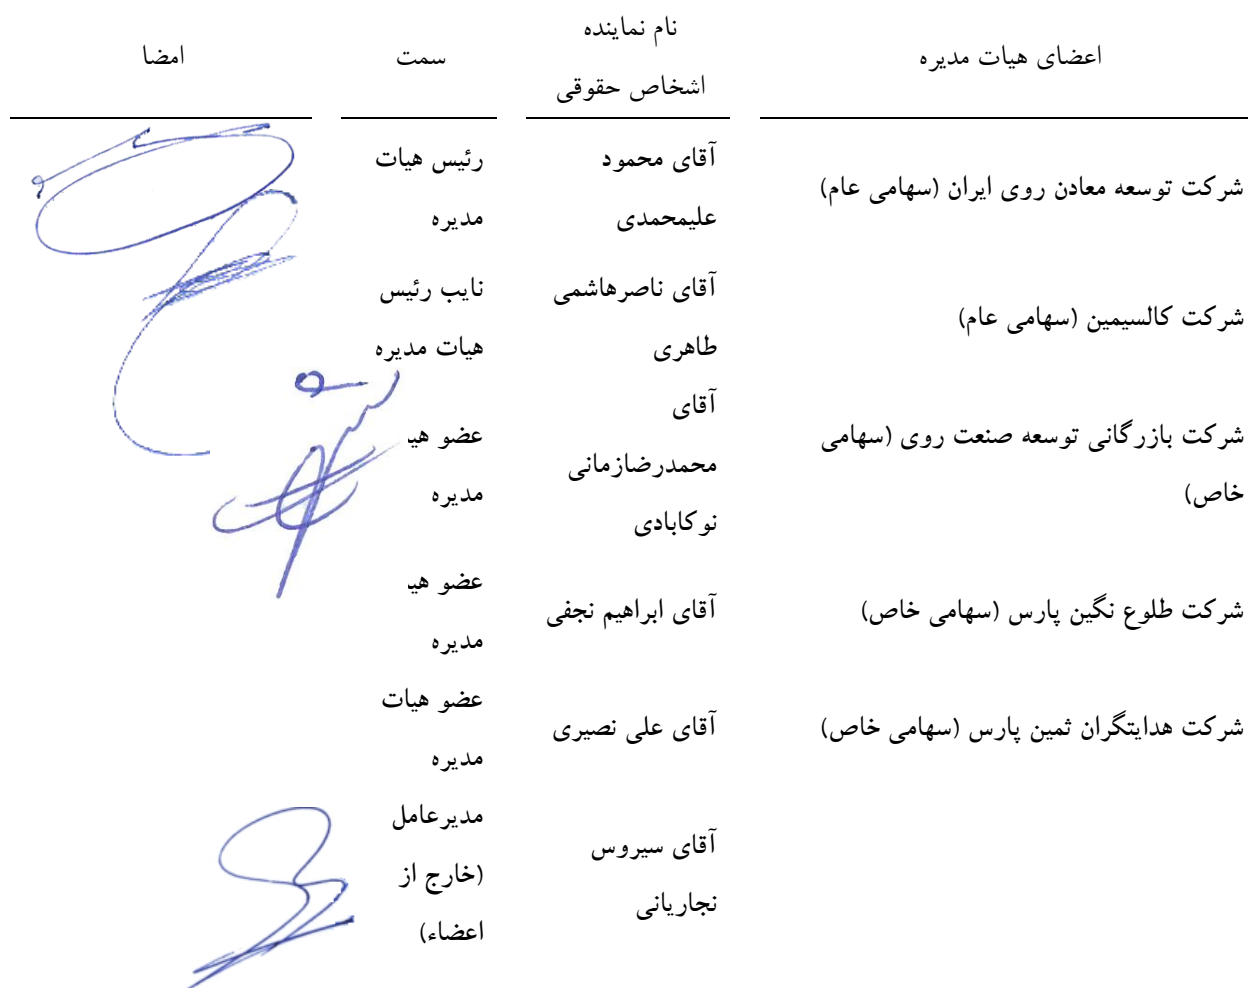 اعضای هیات مدیره
نام نماینده
اشخاص حقوقی
سمت
امضا
شرکت توسعه معادن روی ایران (سهامی عام)
آقای محمود
علیمحمدی
رئیس هیات
مدیره
شرکت کالسیمین (سهامی عام)
آقای ناصرهاشمی
طاهری
نایب رئیس
هیات مدیره
شرکت بازرگانی توسعه صنعت روی (سهامی
خاص)
آقای
محمدرضازمانی
نوکابادی
عضو هی
مدیره
شرکت طلوع نگین پارس (سهامی خاص)
آقای ابراهیم نجفی
عضو هی
مدیره
شرکت هدایتگران ثمین پارس (سهامی خاص)
آقای علی نصیری
عضو هیات
مدیره
آقای سیروس
نجاریانی
مدیرعامل
(خارج از
اعضاء)